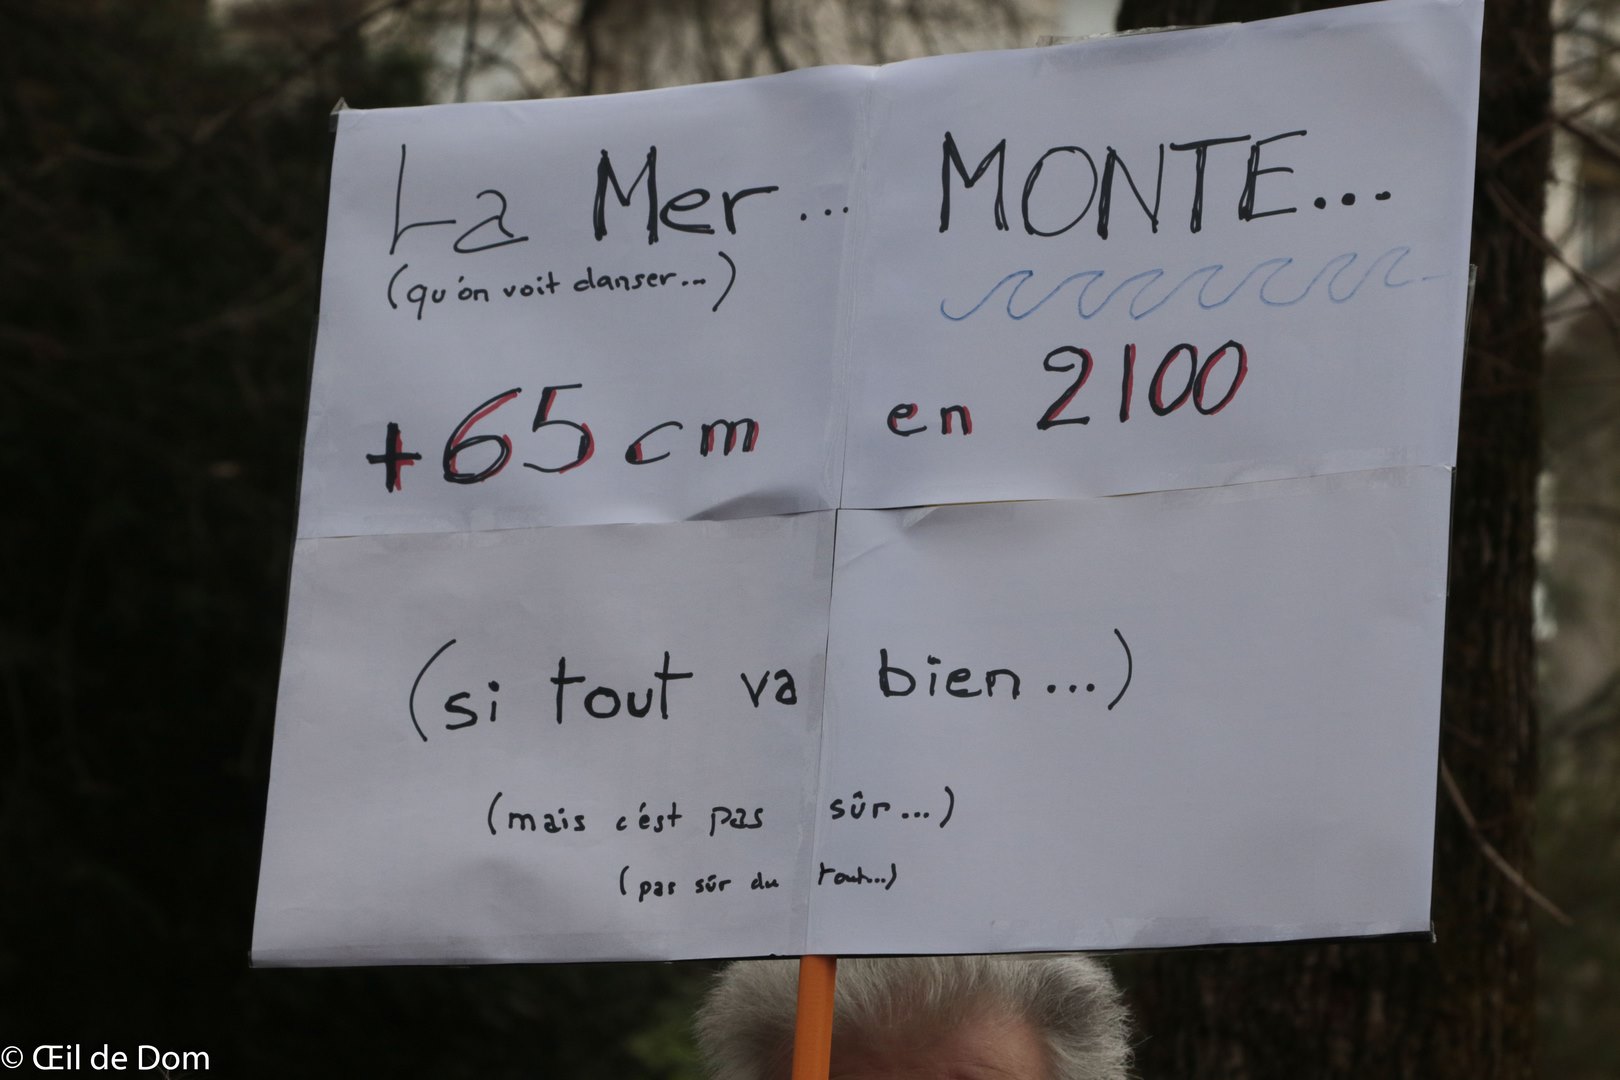 La Mer... MONTE...
(qu'on voit danser...)
+65cm en 2100
(si tout va bien...)
(mais c'est pas sûr...)
(pas sûr du tout...)
© Œil de Dom